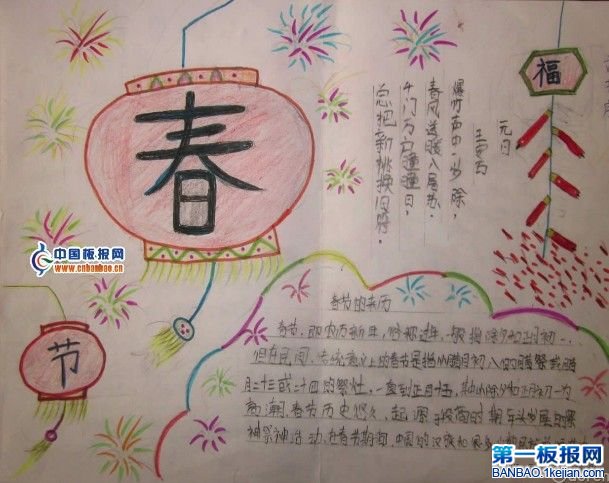 春
节
福
元日
王安石
爆竹声中一岁除，
春风送暖入屠苏。
千门万户曈曈日，
总把新桃换旧符。
春节的来历
春节，即农历新年，俗称过年，一般指除夕和正月初一。
但在民间，传统意义上的春节是指从腊月初八的腊祭或腊
月二十三或二十四的祭灶，一直到正月十五，其中以除夕和正月初一为
高潮。春节历史悠久，起源于殷商时期年头岁尾的祭
神祭祖活动。在春节期间，中国的汉族和很多少数民族
中国板报网
www.cnbanbao.cn
第一板报网
BANBAO.1kejian.com